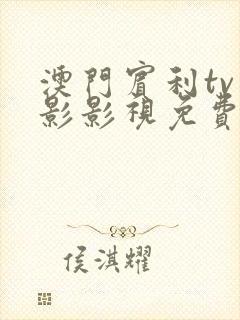 澳門賓利tv
影影視免費
侯淇耀